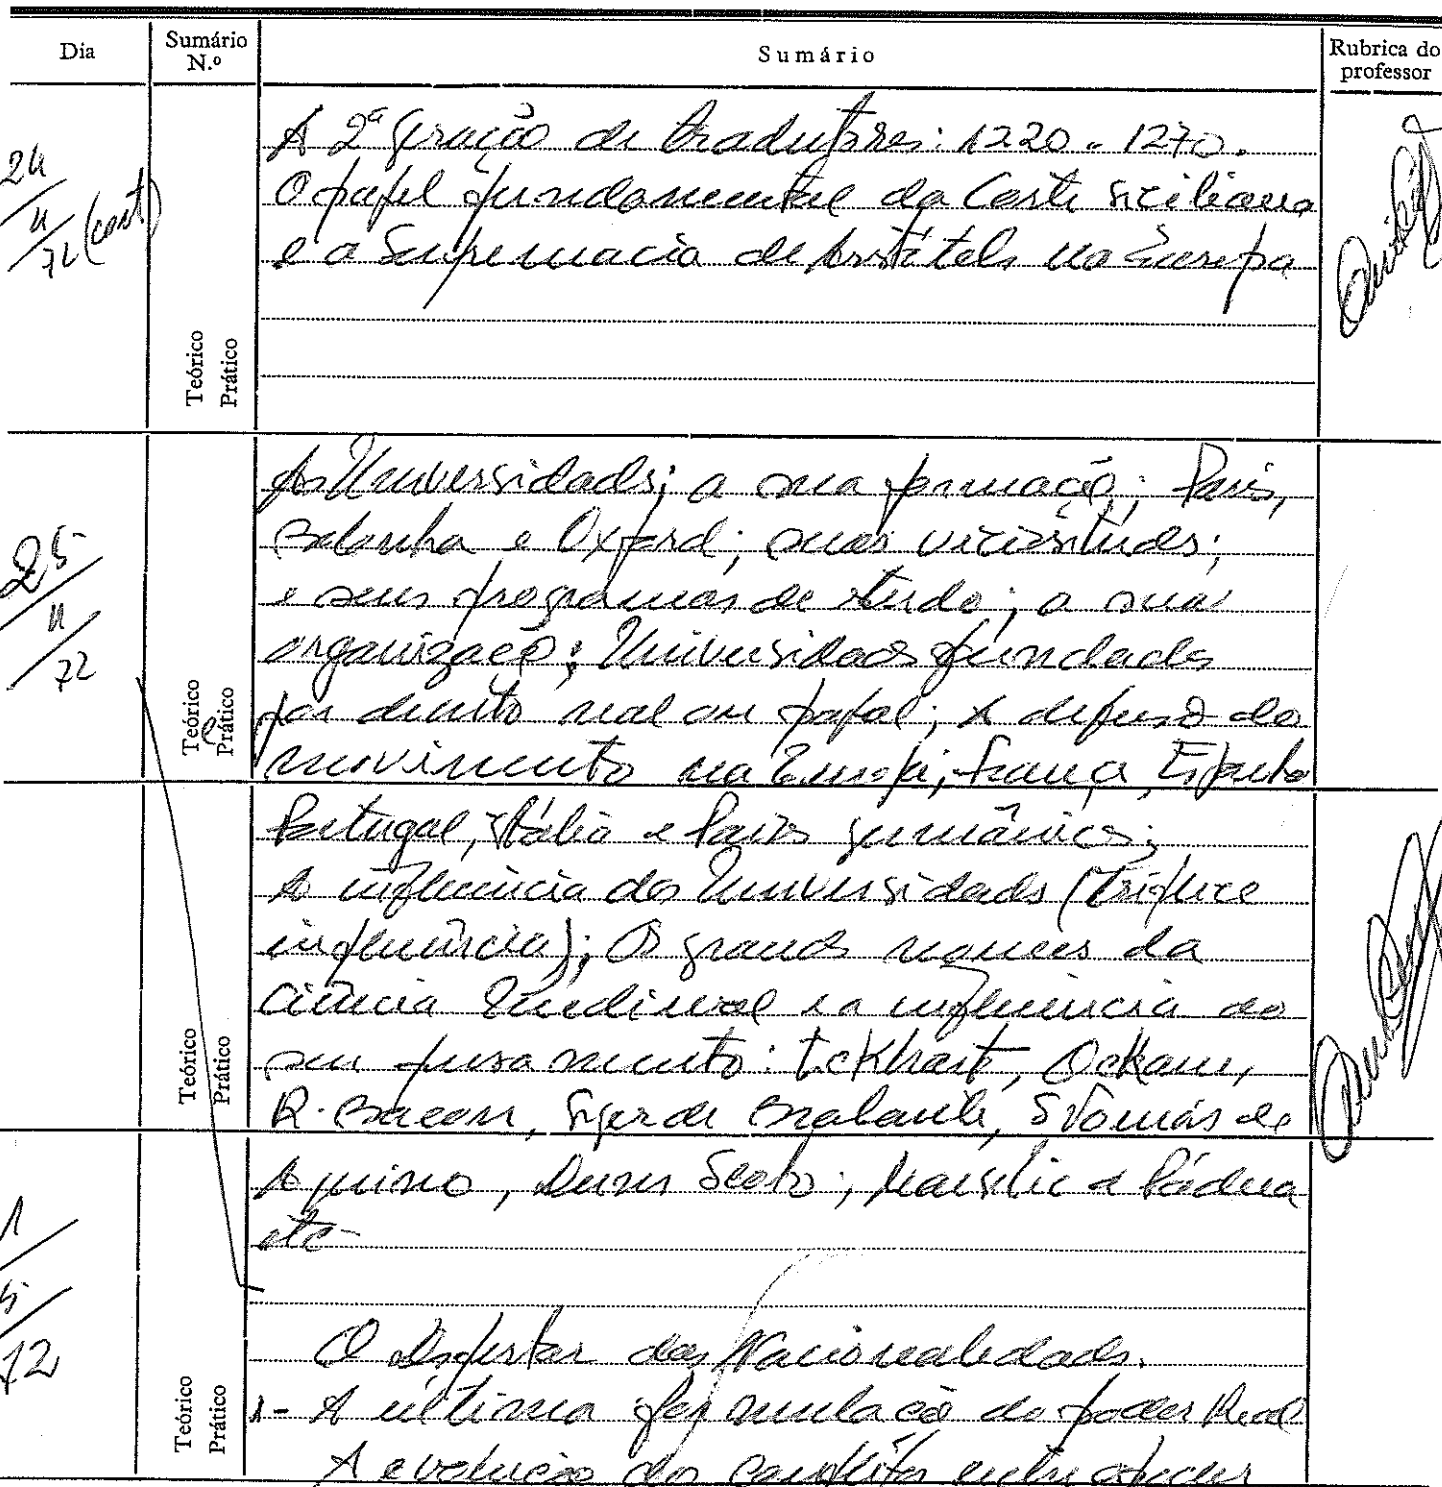 Dia
Sumário N.º
Sumário
Rubrica do professor
24/4/72 (cont)
A 2ª geração de tradutores: 1220 - 1270.
O papel fundamental da Corte Siciliana
e a Supremacia de Aristóteles na Europa
Teórico
Prático
25/4/72
As Universidades; a sua formação; Paris,
Bolonha e Oxford; suas vicissitudes;
e seus programas de estudo; a sua
organização; Universidades fundadas
por direito real ou papal; A difusão do
movimento na Europa, França, Espanha
Teórico e Prático
Portugal, Itália e Países germânicos;
A influência das Universidades (Tríplice
influência); Os grandes nomes da
Ciência Medieval e a influência do
seu pensamento: Eckhart, Ockam,
R. Bacon, Siger de Brabante, S. Tomás de
Teórico
Prático
Aquino, Duns Scoto; Marsílio de Pádua
etc-
1/5/72
O Despertar das Nacionalidades.
1- A última formulação do poder Real
A evolução dos conflitos entre o poder
Teórico
Prático